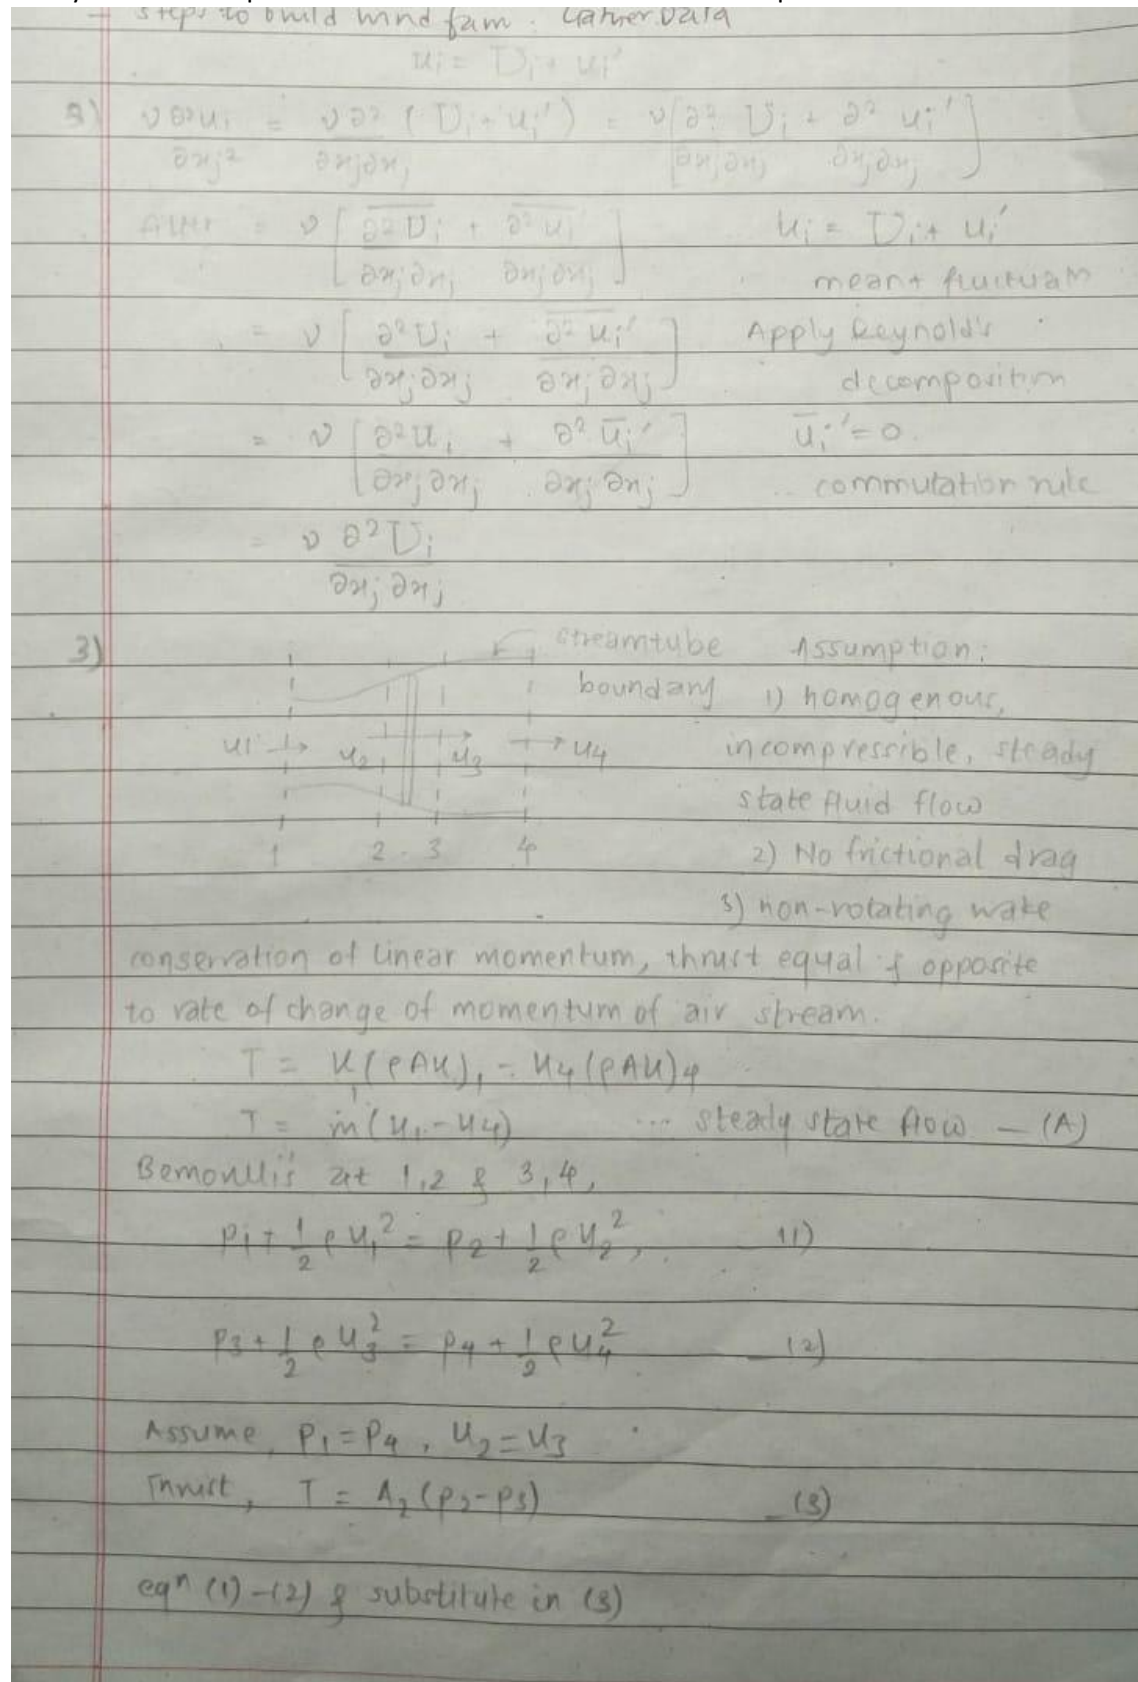 - steps to build wind fam : Gather Data
ui = Ui + ui'
2) ν ∂²ui / ∂xj² = ν ∂² / ∂xj∂xj (Ui + ui') = ν [ ∂² Ui / ∂xj∂xj + ∂² ui' / ∂xj∂xj ]
= ν [ ∂²Ui / ∂xj∂xj + ∂²ui' / ∂xj∂xj ] ui = Ui + ui'
mean + fluctuatn
= ν [ ∂²Ui / ∂xj∂xj + ∂²ui' / ∂xj∂xj ] Apply Reynold's
decomposition
= ν [ ∂²Ui / ∂xj∂xj + ∂² ūi' / ∂xj∂xj ] ūi' = 0
.. commutation rule
= ν ∂²Ui / ∂xj∂xj
3) streamtube Assumption:
boundary 1) homogenous,
u1 → u2 u3 → u4 incompressible, steady
state fluid flow
1 2 3 4 2) No frictional drag
3) non-rotating wake
conservation of linear momentum, thrust equal & opposite
to rate of change of momentum of air stream.
T = u1(ρAu)1 - u4(ρAu)4
T = ṁ(u1 - u4) ... steady state flow — (A)
Bernoulli's at 1,2 & 3,4,
p1 + 1/2 ρu1² = p2 + 1/2 ρu2², — (1)
p3 + 1/2 ρu3² = p4 + 1/2 ρu4² — (2)
Assume, p1 = p4, u2 = u3
Thrust, T = A2(p2-p3) — (3)
eqⁿ (1)-(2) & substitute in (3)